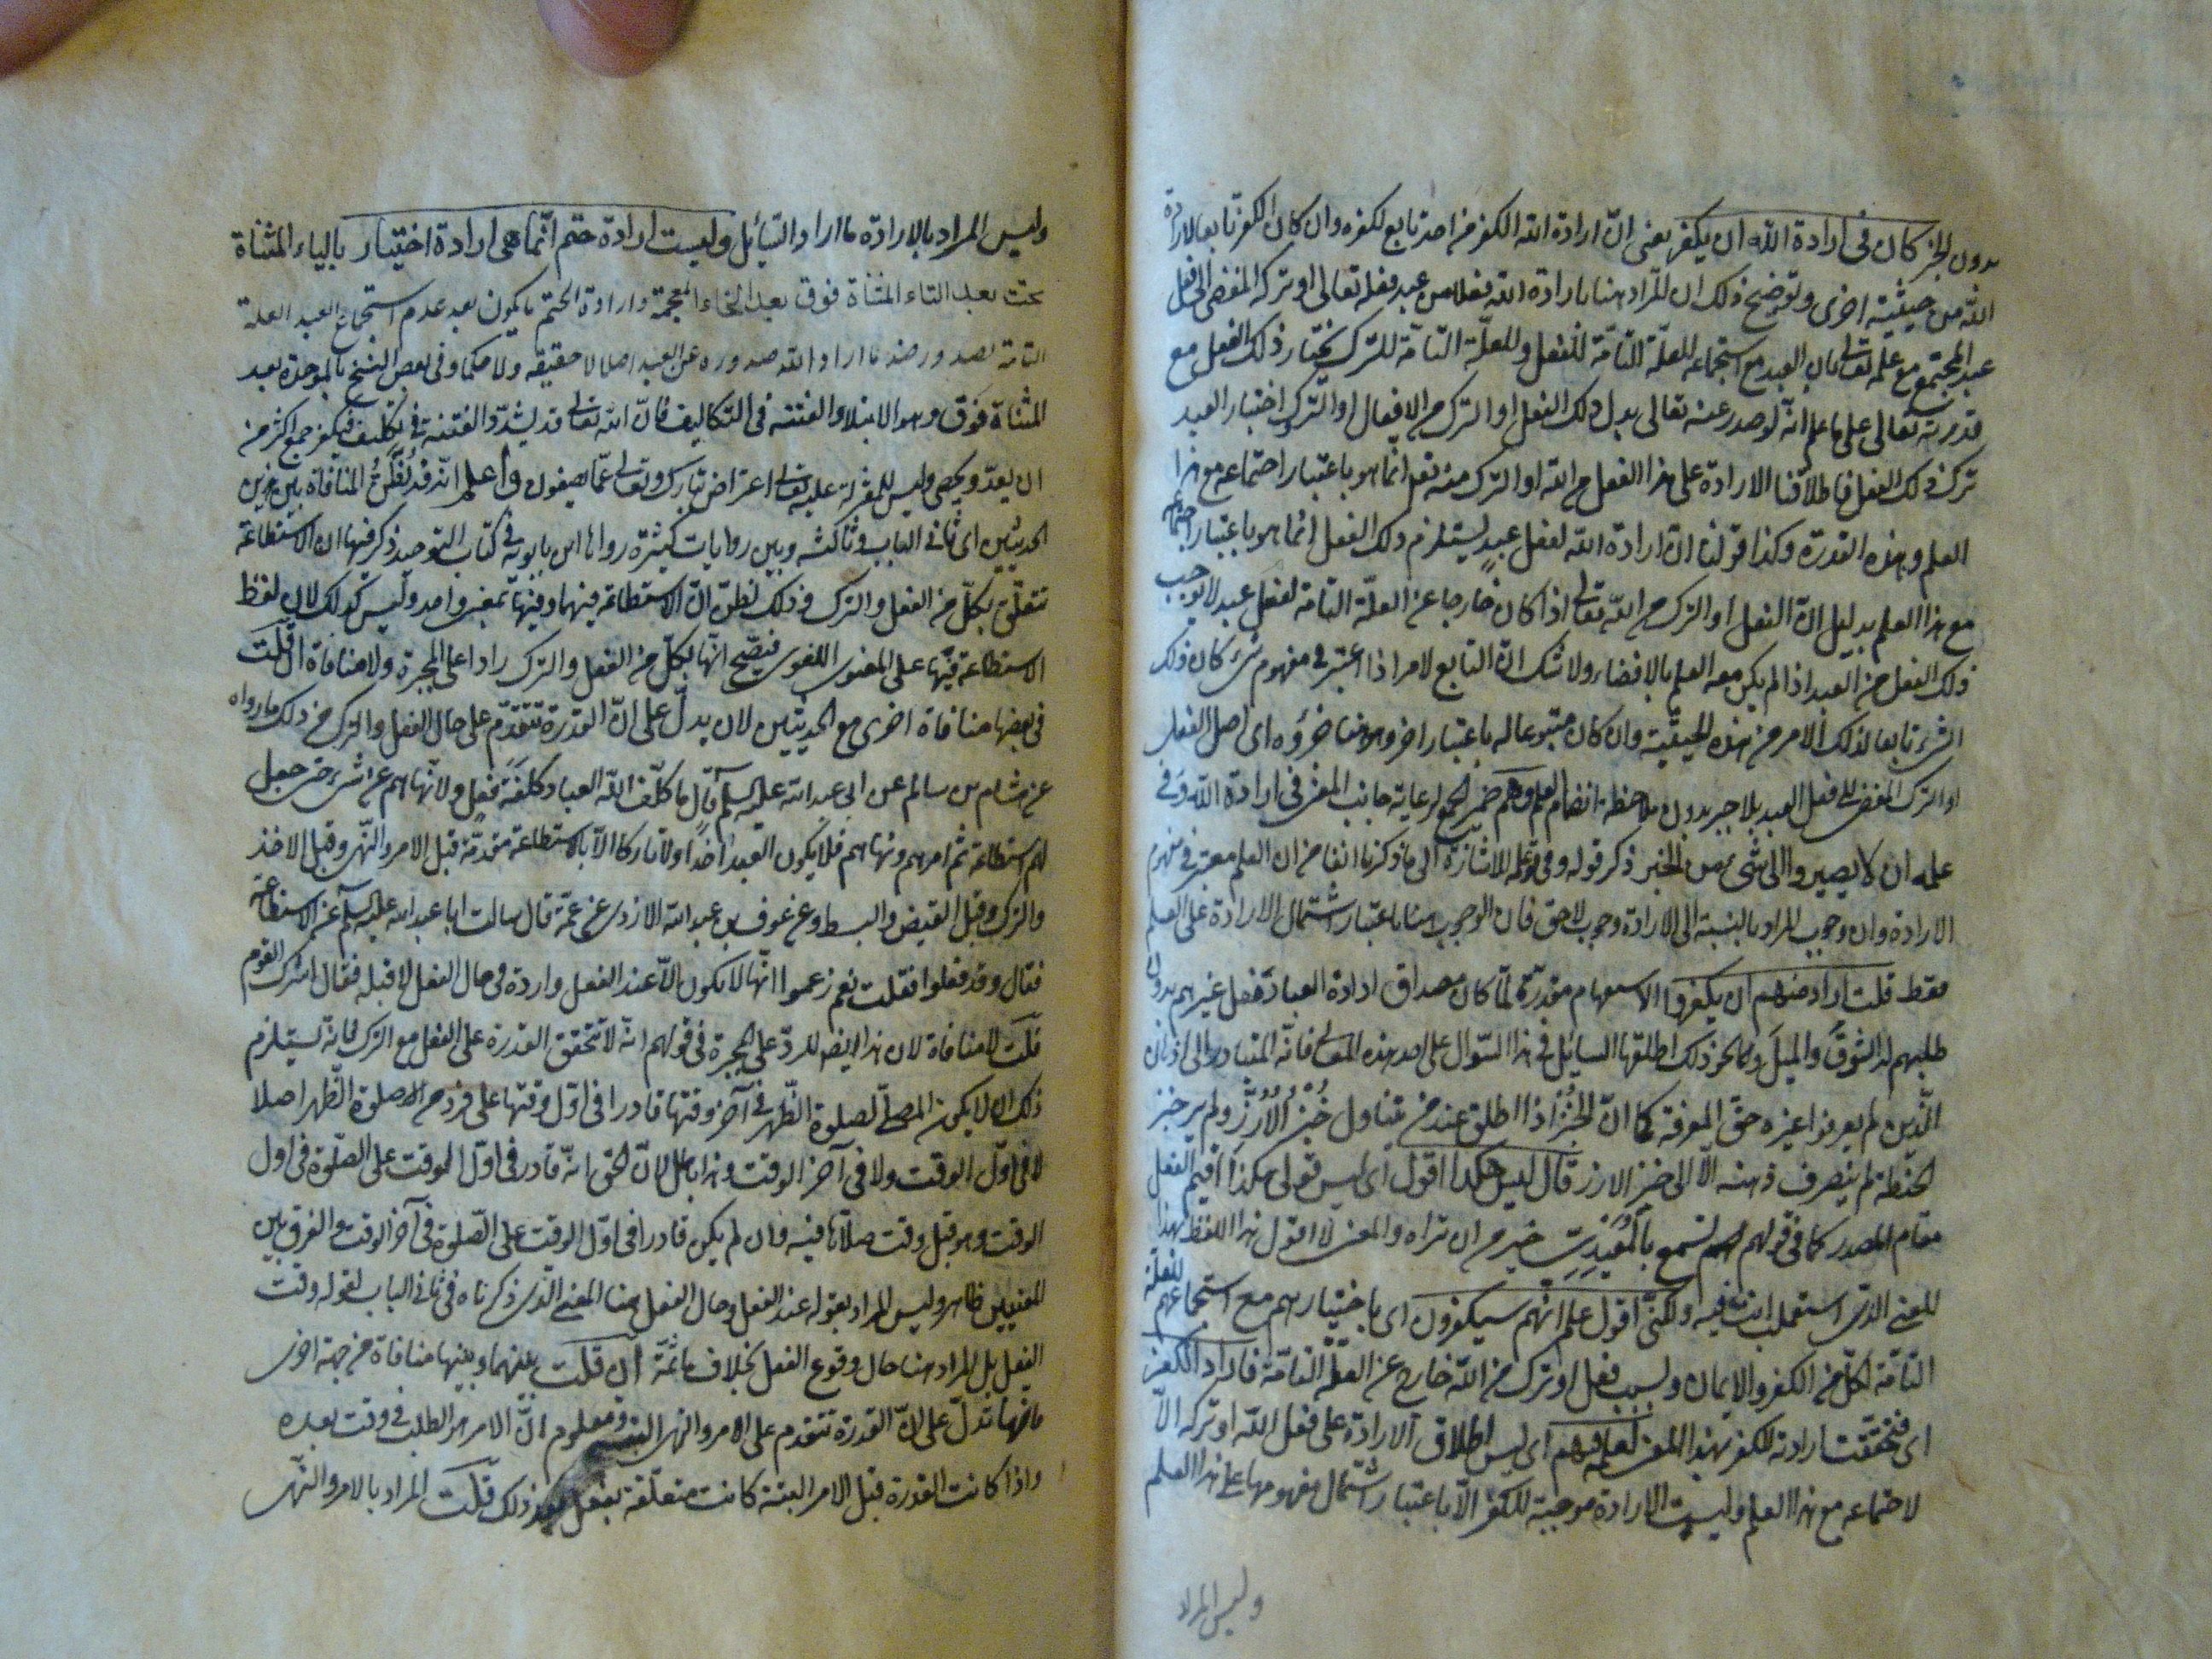 بدون الجبر كان في ارادة الله ان يكفر يعني انّ ارادة الله الكفر من احد تابع لكفره وان كان الكفر تابعا لارادة
الله من حيثية اخرى وتوضيح ذلك ان المراد هنا بارادة الله فعلا من عبد فعله تعالى او تركه المفضي الى فعل
عبد المجتمع مع علمه تعالى بان العبد مع استجماعه للعلّة التامّة للفعل وللعلّة التامّة للترك يختار ذلك الفعل مع
قدرته تعالى على ما علم انّه لو صدر عنه تعالى بدل ذلك الفعل او الترك من الافعال او التروك اختار العبد
ترك ذلك الفعل فاطلاقنا الارادة على هذا الفعل من الله او الترك منه تعالى انما هو باعتبار اجتماعه مع هذا
العلم وبهذه القدرة وكذا قولنا انّ ارادة الله لفعل عبد يستلزم ذلك الفعل انما هو باعتبار اجتماعهم
مع هذا العلم بدليل انّ الفعل او الترك من الله تعالى اذا كان خارجا عن العلّة التامة لفعل عبد لا يوجب
ذلك الفعل من العبد اذا لم يكن معه العلم بالافضاء ولا شك انّ التابع لامر اذا اعتبر في مفهوم شيء كان ذلك
الشيء تابعا لذلك الامر من هذه الحيثية وان كان متبوعا له باعتبار اخر وهو هنا جزؤه اى اصل الفعل
او الترك المفضي الى فعل العبد بلا جبر بدون ملاحظة انضمام العلم وهم ضمير الجمع لرعاية جانب المعنى في ارادة الله وفي
علمه ان لا يصيروا الى شيء من الخير ذكر قوله وفي علمه للاشارة الى ما ذكرنا انفا من ان العلم معتبر في مفهوم
الارادة وان وجوب المراد بالنسبة الى الارادة وجوب لاحق فان الوجوب هنا باعتبار اشتمال الارادة على العلم
فقط قلت اراد منهم ان يكفروا الاستفهام مقدّر لمّا كان مصداق ارادة العباد فعل غيرهم بدون
طلبهم له الشوق والميل ونحو ذلك اطلقها السائل في هذا السؤال على احد هذه المعانى فانّه المتبادر الى اذهان
الذين لم يعرفوا غيره حق المعرفة كما انّ الخبز اذا اطلق عند من تناول خبز الارزّ ولم ير خبز
الحنطة لم ينصرف ذهنه الّا الى خبز الارز قال ليس هكذا اقول اى ليس قولى هكذا اقيم الفعل
مقام المصدر كما في قولهم تسمع بالمعيدي خير من ان تراه والمعنى لا اقول هذا اللفظ بهذا
المعنى الذى استعملت انت فيه ولكنّى اقول علم انهم سيكفرون اى باختيارهم مع استجماعهم للعلّة
التامّة لكل من الكفر والايمان وليست فعل او ترك من الله خارج عن العلّة التامّة فاراد الكفر
اى فتحققت ارادته للكفر بهذا المعنى لعلمه فيهم اى ليس اطلاق الارادة على فعل الله او تركه الّا
لاجتماعه مع هذا العلم وليست الارادة موجبة للكفر الّا باعتبار اشتمال مفهومها على هذا العلم
وليس المراد
وليس المراد بالارادة ما اراد السّائل وليست ارادة حتم انّما هي ارادة اختيار بالياء المثناة
تحت بعد التاء المثناة فوق بعد الخاء المعجمة وارادة الحتم ما يكون بعد عدم استجماع العبد العلة
التامة لصدور ضد ما اراد الله صدوره عن العبد اصلا لا حقيقة ولا حكما وفي بعض النسخ بالموحدة بعد
المثناة فوق وهو الابتلاء والفتنة في التكاليف فانّ الله تعالى قد يشدّد الفتنة في تكليف فيكفر جمع اكثر من
ان يعدّ ويحصى وليس للمعتزلة عليه تعالى اعتراض تبارك وتعالى عمّا يصفون واعلم انّه قد يُظَنُّ المنافاة بين هذين
الحديثين اى ثانى الباب وثالثه وبين روايات كثيرة رواها ابن بابويه في كتاب التوحيد ذكر فيها ان الاستطاعة
تتعلق بكلّ من الفعل والترك وذلك لظنّ انّ الاستطاعة فيهما وفيها بمعنى واحد وليس كذلك لان لفظ
الاستطاعة فيها على المعنى اللغوى فيصحّ انّها لكل من الفعل والترك ردا على المجبرة ولا منافاة ان قلت
في بعضها منافاة اخرى مع الحديثين لان يدلّ على انّ القدرة تتقدّم على حال الفعل والترك من ذلك ما رواه
عن هشام بن سالم عن ابى عبد الله عليه السلم قال ما كلّف الله العباد كلفة فعل ولا نهاهم عن شيء حتى جعل
لهم استطاعة ثم امرهم ونهاهم فلا يكون العبد اخذا ولا تاركا الّا باستطاعة متقدّمة قبل الامر والنّهى وقبل الاخذ
والترك وقبل القبض والبسط وعن عوف بن عبد الله الازدى عن عمّه قال سالت ابا عبد الله عليه السلم عن الاستطاعة
فقال وقد فعلوا فقلت نعم زعموا انّها لا يكون الّا عند الفعل واردة في حال الفعل لا قبله فقال اشرك القوم
قلت لا منافاة لان هذا ايضا للردّ على المجبرة في قولهم انّه لا تتحقق القدرة على الفعل مع الترك فانّه يستلزم
ذلك ان لا يكون المصلّى لصلوة الظّهر في آخر وقتها قادرا في اوّل وقتها على فرد من صلوة الظّهر اصلا
لا في اوّل الوقت ولا في آخر الوقت وهذا باطل لانّ الحق انّه قادر في اوّل الوقت على الصّلوة في اول
الوقت وهو قبل وقت صلاتها فيه وان لم يكن قادرا في اوّل الوقت على الصّلوة في آخر الوقت والفرق بين
المعنيين ظاهر وليس المراد بقوله عند الفعل وحال الفعل هنا المعنى الذى ذكرناه في ثانى الباب لقوله وقت
الفعل بل المراد هنا حال وقوع الفعل بخلاف ما ثمّة ان قلت بينهما وبينها منافاة من جهة اخرى
فانها تدلّ على انّ القدرة تتقدم على الامر والنهى ومعلوم انّ الامر هو الطلب في وقت بعده
واذا كانت القدرة قبل الامر البتة كانت متعلّقة بفعل بعد ذلك قلت المراد بالامر والنّهى